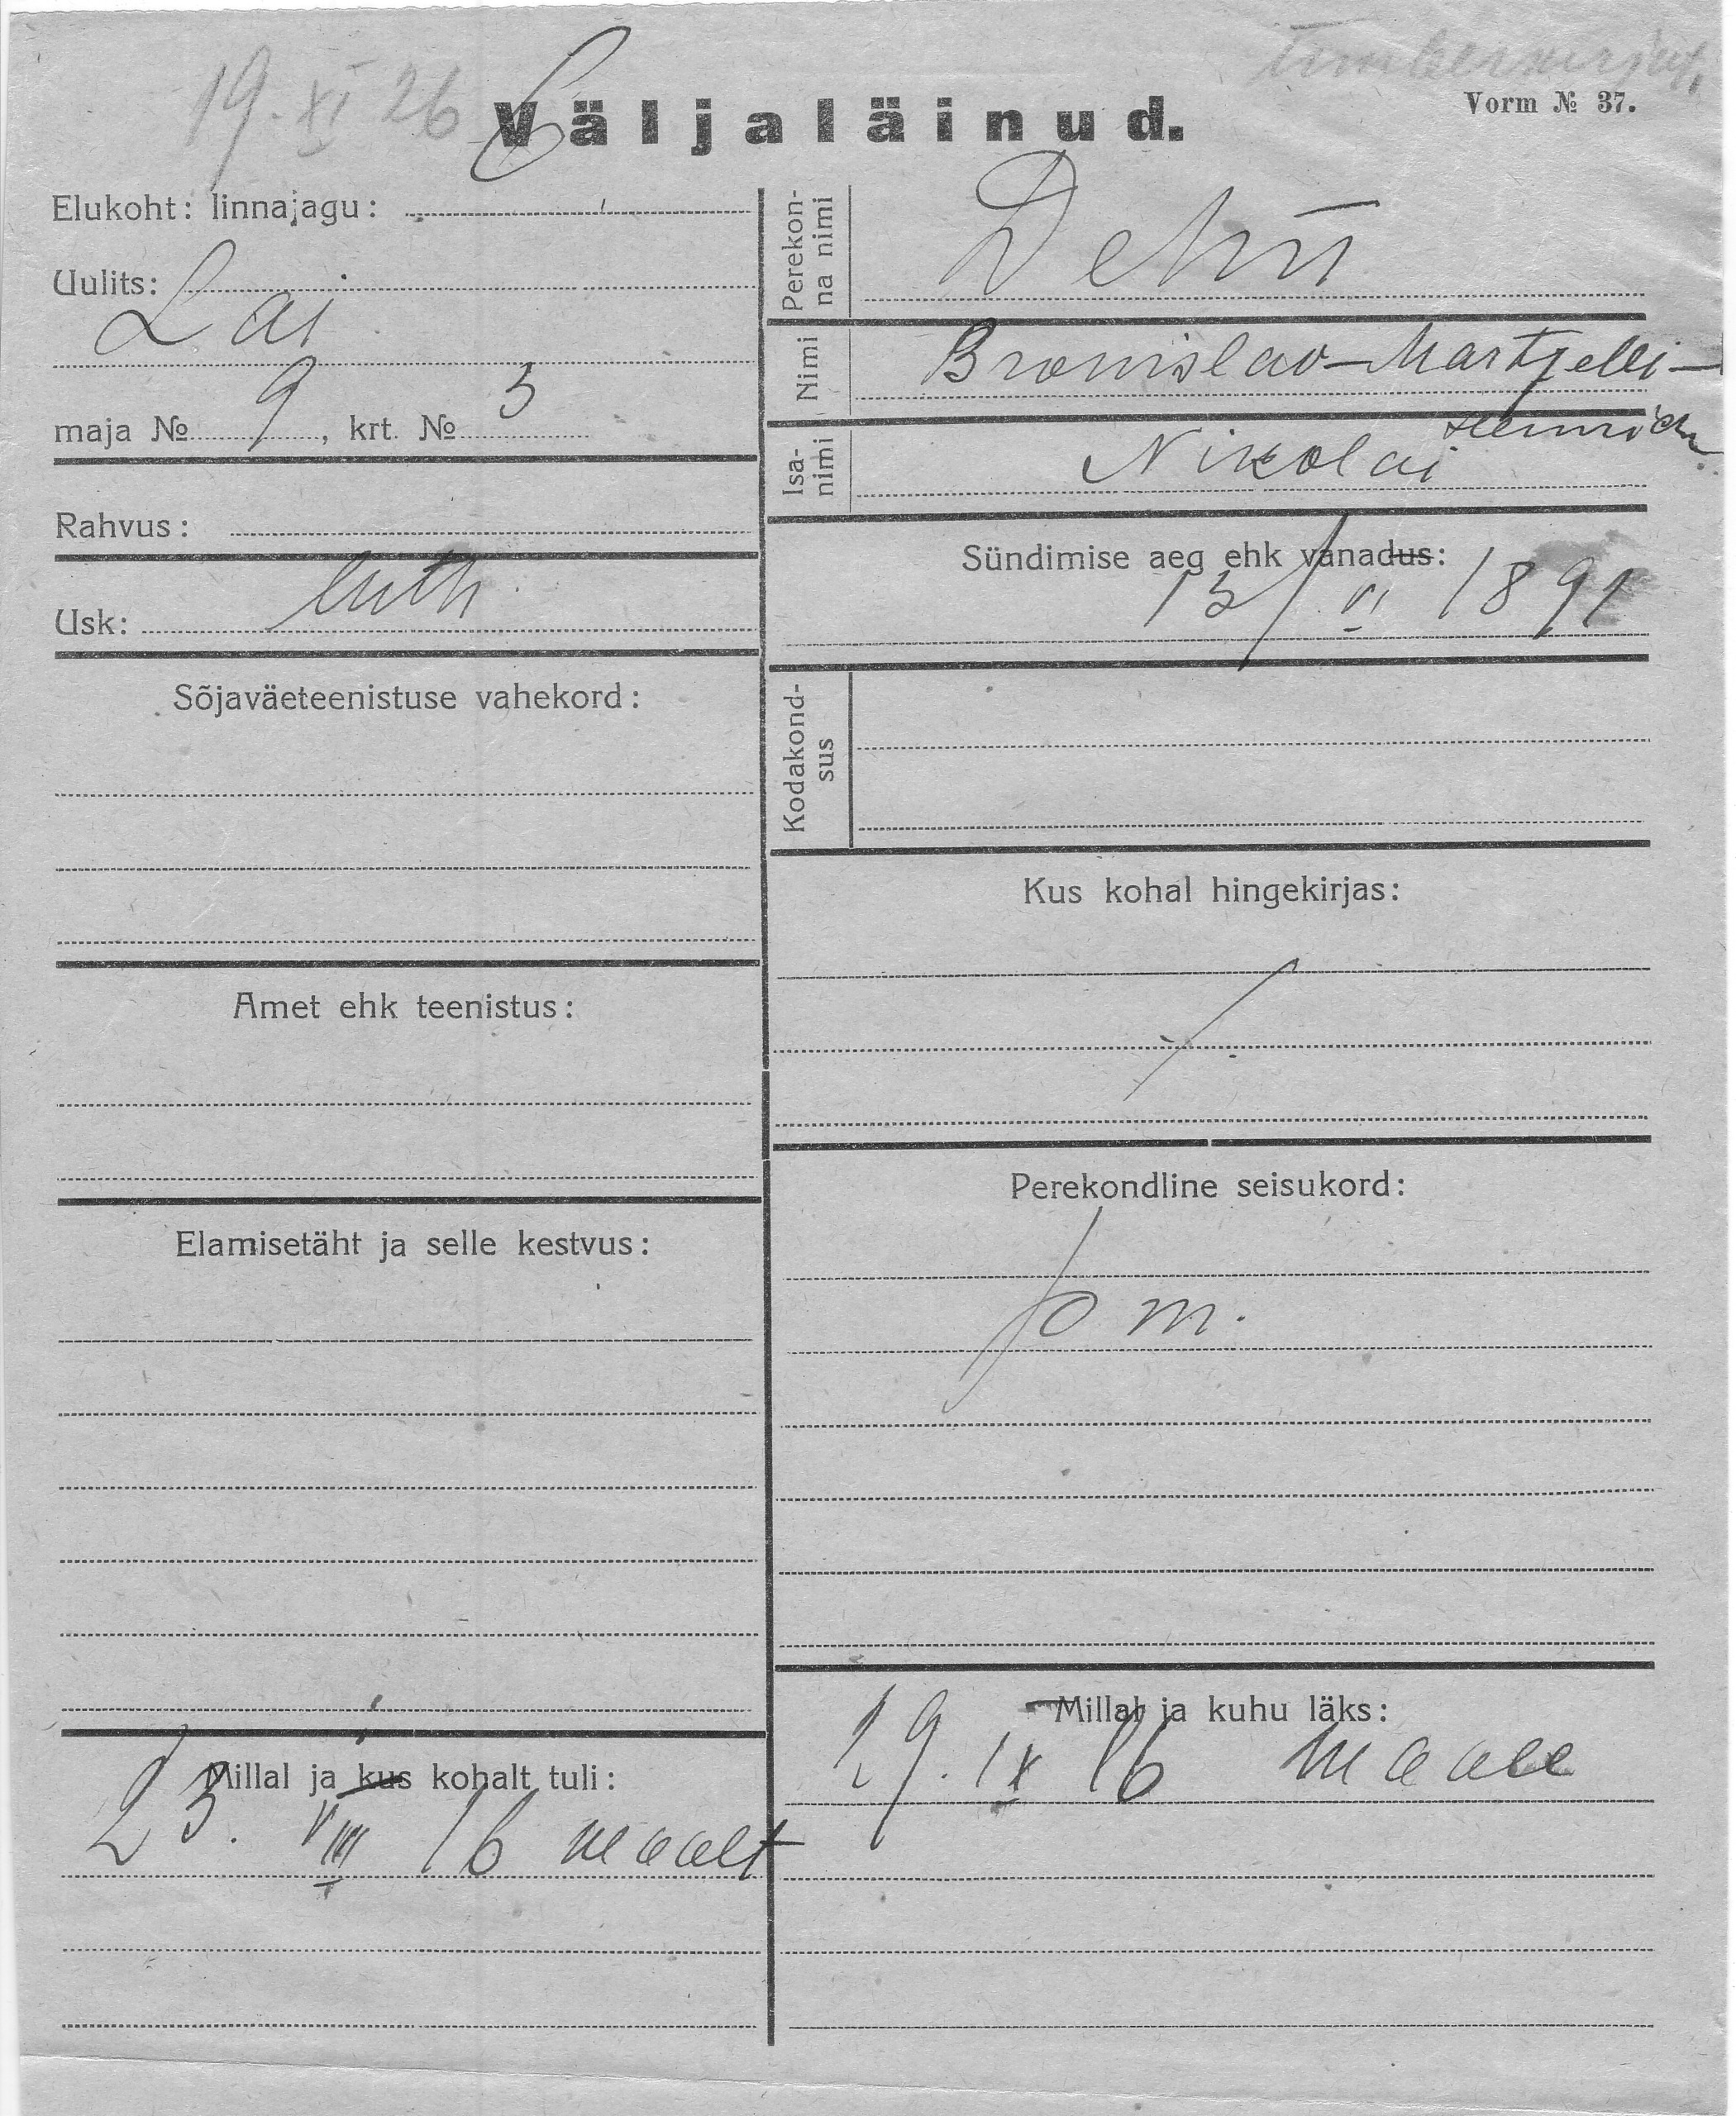 19. XI 26
ümberkirjut.
Väljaläinud.
Vorm № 37.
Elukoht: linnajagu:
Uulits: Lai
maja № 9, krt. № 5
Rahvus:
Usk: luth.
Sõjaväeteenistuse vahekord:
Amet ehk teenistus:
Elamisetäht ja selle kestvus:
Millal ja kus kohalt tuli:
23. VIII 16 maalt
Perekon-
na nimi
Dehn
Nimi
Bronislav-Martzelli-
Heinrich
Isa-
nimi
Nikolai
Sündimise aeg ehk vanadus:
15/VI 1891
Kodakond-
sus
Kus kohal hingekirjas:
Perekondline seisukord:
Millal ja kuhu läks:
19. IX 16 maale